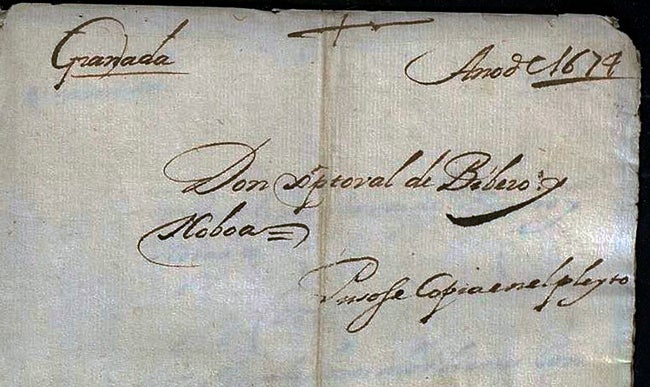 Granada
Anod e 1674
Don Xptoval de Bibero y
Noboa =
Pusose Copia en el pleyto